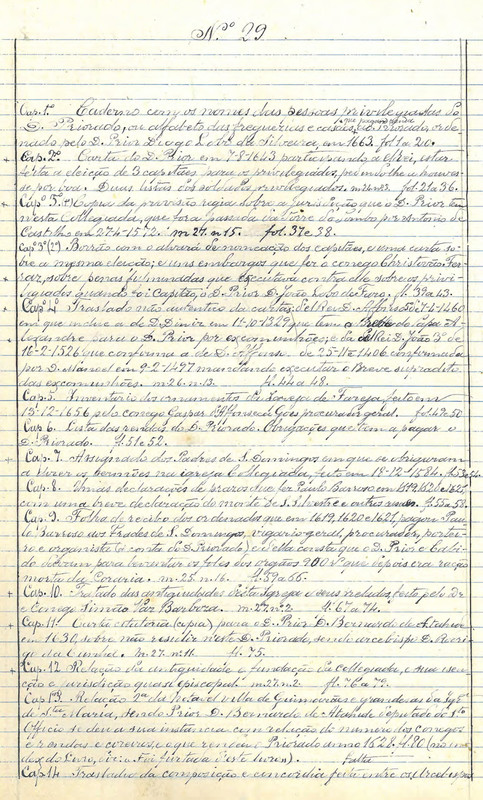 Nº 29
Cap. 1º Caderno com os nomes das pessoas privilegiadas do
D. Priorado, ou alfabeto das freguezias e casaes do Priorado, orde-
nado pelo D. Prior Diogo Lobo da Silveira, em 1663. fol. 1 a 20.
Cap. 2º Carta do D. Prior em 7-8-1643 participando a elRei, estar
feita a eleição de 3 capitães para os privilegiados, pedindo-lhe a houves-
se por boa. Duas listas dos soldados privilegiados. m. 26 n. 23. fol. 21 a 36.
Capº 3º (1) Copia da provisão regia sobre a jurisdição que o D. Prior tem
n'esta Collegiada, que fora passada da Torre do Tombo por Antonio de
Castilho em 27-4-1572. m. 27. n. 15. fol. 37 e 38.
Cap 3º (2) Borrão com o alvará de nomeação dos capitães, e uma carta so-
bre a mesma eleição; e uns embargos que fez o conego Christovão Fer-
raz, sobre penas fulminadas que executava contra elle sobre os privi-
legiados quando foi Capitão, o D. Prior D. João Lobo de Faro. fl. 39 a 43.
Cap. 4. Traslado não autentico da carta de elRei D. Affonso 5º de 1-6-1460
em que inclue a de D. Diniz em 11-10-1329 que tem o Breve do Papa A-
lexandre para o D. Prior por excommunhões; e da de elRei D. João 3º de
16-2-1526 que confirma a de D. Affonso de 25-11-1406 confirmada
por D. Manoel em 9-2-1497 mandando executar o Breve supradito
das excomunhões. m. 26. n. 13. fl. 44 a 48.
Cap. 5. Inventario dos ornamentos da Igreja de Tareja feito em
13-12-1656, pelo conego Gaspar d'Affonseca Goes procurador geral. fol. 49 e 50
Cap 6. Lista das rendas do D. Priorado. Obrigações que tem a pagar o
D. Priorado. fl. 51 e 52.
Cap. 7. Assignado dos Padres de S. Domingos em que se obrigaram
a dizer os sermões na igreja Collegiada, feito em 18-12-1584. fl. 53 e 54.
Cap. 8. Umas declarações de prazos que fez Paulo Barroso em 1619, 1620 e 1621,
com uma breve declaração do monte de S. Silvestre e outras mais. fl. 55 a 58.
Cap. 9. Folha de recibo dos ordenados que em 1619, 1620 e 1621, pagou Pau-
lo Barroso aos Frades de S. Domingos, vigario geral, procurador, portei-
ro e organista (á conta do D. Priorado) e d'ella consta que o D. Prior e Cabi-
do deram para levantar os foles dos orgãos 900 rs que depois era ração
morta da Conaria. m. 25. n. 16. fl. 59 a 66.
Cap. 10. Tratado das antiguidades d'esta Igreja e seus prelados, feito pelo Dr
e Conego Simão Vaz Barboza. m. 27. nº 2 fl. 67 a 74.
Cap. 11. Carta citatoria (copia) para o D. Prior D. Bernardo de Athaide
em 1630, sobre não residir n'este D. Priorado, sendo arcebispo D. Rodri-
go da Cunha. m. 27. n. 11. fl. 75.
Cap. 12. Relação da antiguidade e fundação da Collegiada, e sua isen-
ção e jurisdição quasi episcopal. m. 27. n. 2. fl. 76 a 79.
Cap. 13. Relação 2ª da Notavel villa de Guimarães e grandezas da Igrª
de Stª Maria, sendo Prior D. Bernardo de Athaide deputado do Stº
Officio se deu a sua instancia com relação do numero dos conegos
e rendas e coreiros, e que rendia o Priorado anno 1628. fl. 80 (no in-
dex do Livro, diz: Foi furtada d'este livro). Falta
Cap. 14. Traslado da composição e concordia feita entre os Arcebispos